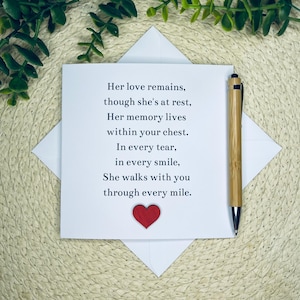 Her love remains,
though she's at rest,
Her memory lives
within your chest.
In every tear,
in every smile,
She walks with you
through every mile.